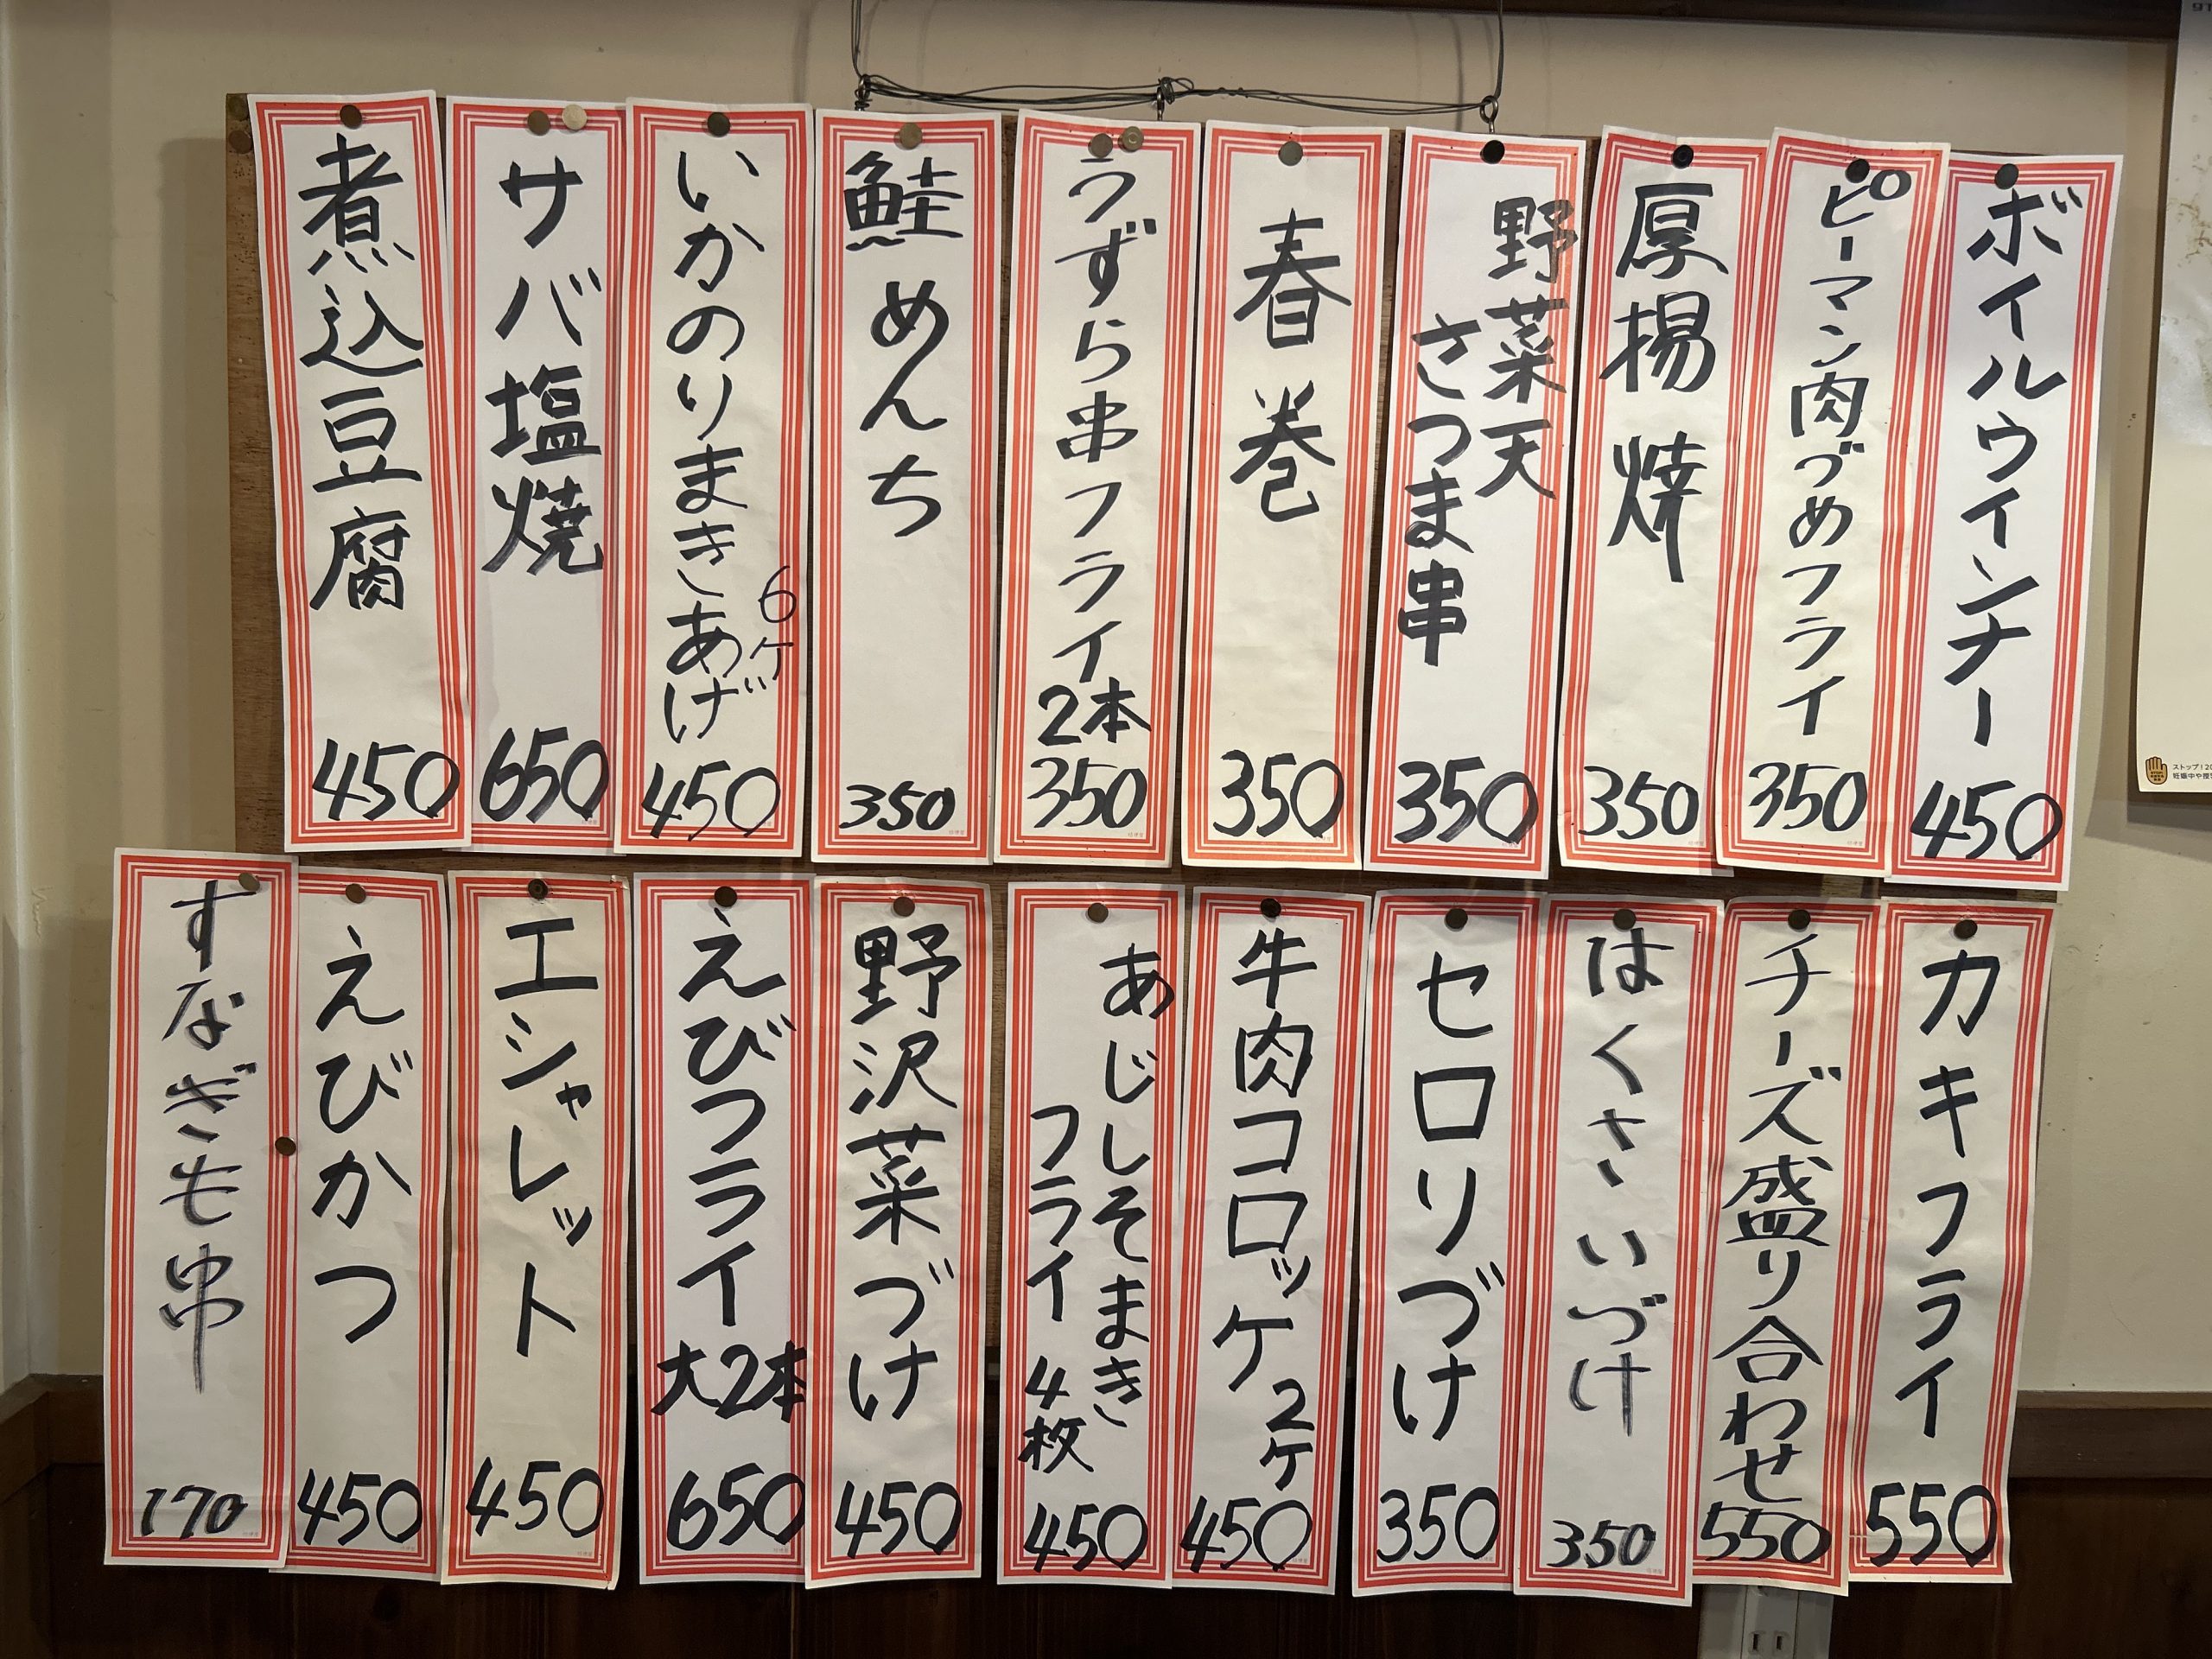 ボイルウインナー
450
ピーマン肉づめフライ
350
厚揚焼
350
野菜天
さつま串
350
春巻
350
うずら串フライ
2本
350
鮭めんち
350
いかのりまきあげ
6ケ
450
サバ塩焼
650
煮込豆腐
450
カキフライ
550
チーズ盛り合わせ
550
はくさいづけ
350
セロリづけ
350
牛肉コロッケ
2ケ
450
あじしそまき
フライ 4枚
450
野沢菜づけ
450
えびフライ
大2本
650
エシャレット
450
えびかつ
450
すなぎも串
170
ストップ!20
妊娠中や授